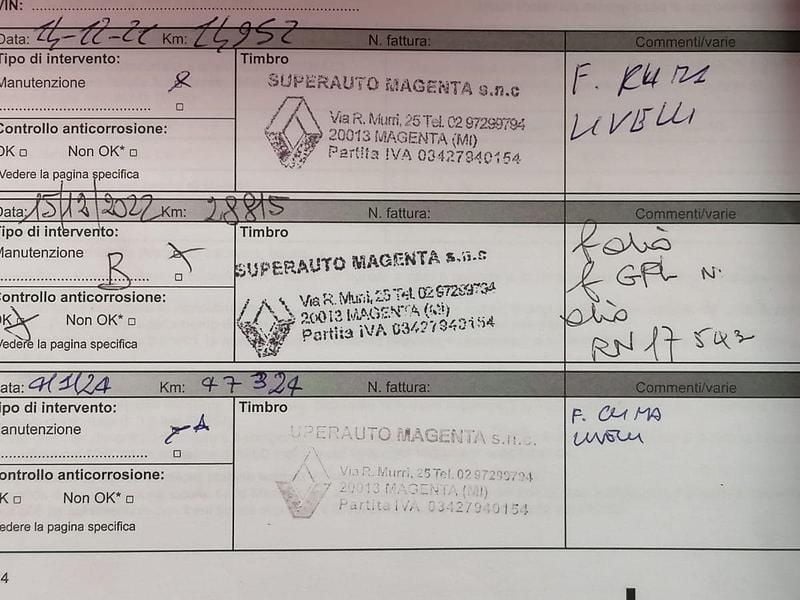 VIN:
Data: 14-12-21 Km: 14952 N. fattura: Commenti/varie
Tipo di intervento:
Manutenzione
Controllo anticorrosione:
OK Non OK*
Vedere la pagina specifica
Timbro
SUPERAUTO MAGENTA s.n.c
Via R. Murri, 25 Tel. 02 97299794
20013 MAGENTA (MI)
Partita IVA 03427940154
F.
LIVELLI
Data: 15/12/2022 Km: 28815 N. fattura: Commenti/varie
Tipo di intervento:
Manutenzione
B
Controllo anticorrosione:
OK Non OK*
Vedere la pagina specifica
Timbro
SUPERAUTO MAGENTA s.n.c
Via R. Murri, 25 Tel. 02 97299794
20013 MAGENTA (MI)
Partita IVA 03427940154
f olio
f GPL N.
olio
RN17
ata: 4/1/24 Km: 47324 N. fattura: Commenti/varie
ipo di intervento:
anutenzione A
ontrollo anticorrosione:
K Non OK*
edere la pagina specifica
Timbro
UPERAUTO MAGENTA s.n.c.
Via R. Murri, 25 Tel. 02 97299794
20013 MAGENTA (MI)
Partita IVA 03427940154
F. CLIMA
LIVELLI
4